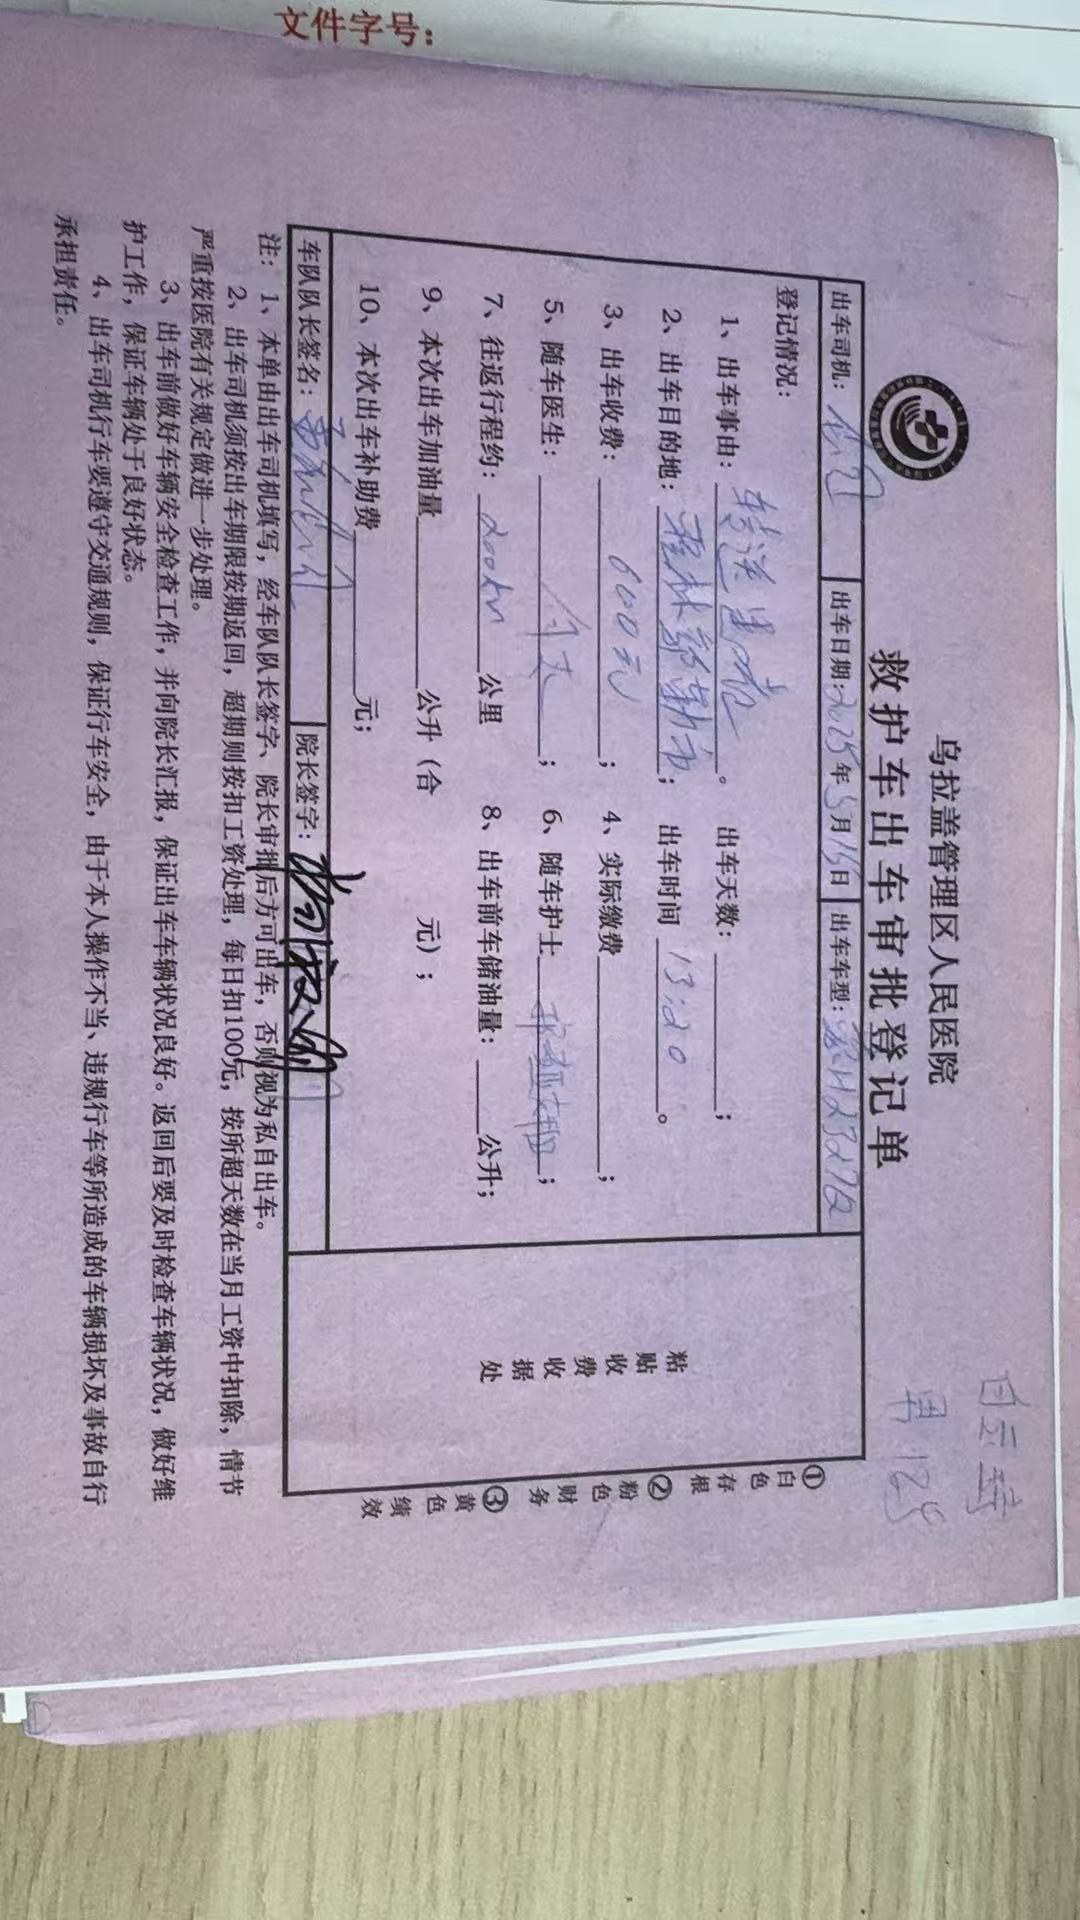 文件字号：
乌拉盖管理区人民医院
救护车出车审批登记单
白云琦
男 12岁
出车司机： 出车日期:2025年5月15日 出车车型：蒙H2327G
登记情况：
1、出车事由：转送患者。 出车天数：；
2、出车目的地：霍林郭勒市； 出车时间 13:20。
3、出车收费：600元； 4、实际缴费；
5、随车医生：； 6、随车护士；
7、往返行程约：200km公里 8、出车前车储油量：公升；
9、本次出车加油量公升（合 元）；
10、本次出车补助费元；
粘贴收费收据处
①白色存根 ②粉色财务 ③黄色绩效
车队队长签名： 院长签字：
注：1、本单由出车司机填写，经车队队长签字、院长审批后方可出车，否则视为私自出车。
2、出车司机须按出车期限按期返回，超期则按扣工资处理，每日扣100元，按所超天数在当月工资中扣除，情节
严重按医院有关规定做进一步处理。
3、出车前做好车辆安全检查工作，并向院长汇报，保证出车车辆状况良好。返回后要及时检查车辆状况，做好维
护工作，保证车辆处于良好状态。
4、出车司机行车要遵守交通规则，保证行车安全，由于本人操作不当、违规行车等所造成的车辆损坏及事故自行
承担责任。